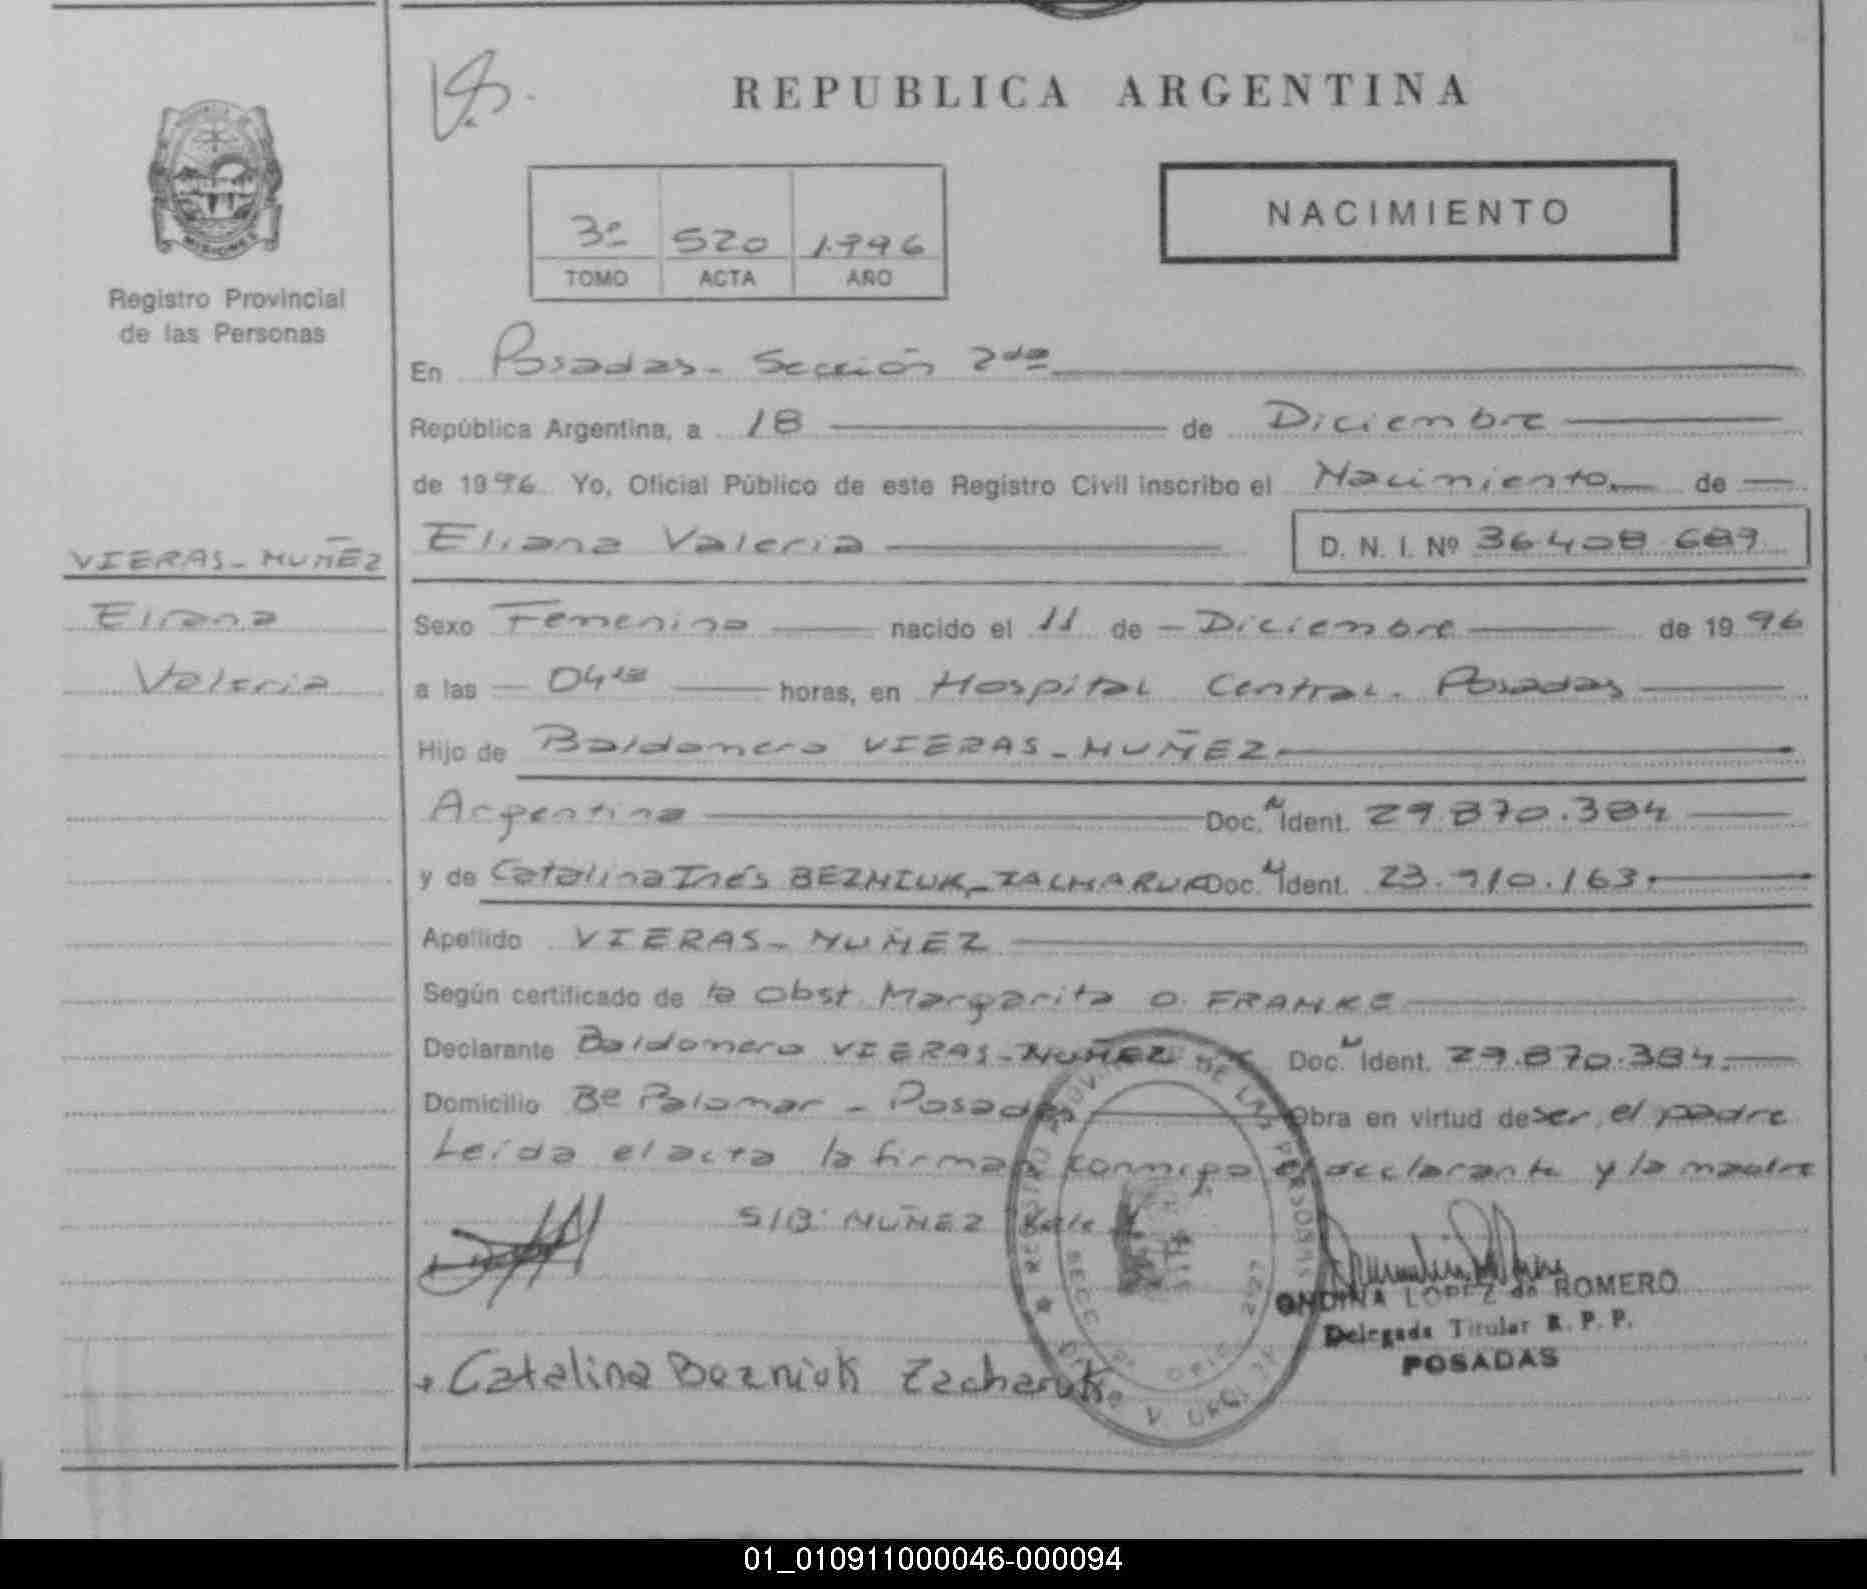 REPUBLICA ARGENTINA
MISIONES
Registro Provincial
de las Personas
3º 520 1.996
TOMO ACTA AÑO
NACIMIENTO
En Posadas - Sección 2da
República Argentina, a 18 de Diciembre
de 1996 Yo, Oficial Público de este Registro Civil inscribo el Nacimiento de
Eliana Valeria D. N. I. Nº 36408689
VIERAS-MUÑEZ
Eliana
Valeria
Sexo Femenino nacido el 11 de Diciembre de 1996
a las 04 horas, en Hospital Central. Posadas
Hijo de Baldomero VIERAS-NUÑEZ
Argentina Doc. N Ident. 29.870.384
y de Catalina Inés BEZNIUK-ZACHARUK Doc. N Ident. 23.910.163.
Apellido VIERAS-NUÑEZ
Según certificado de la Obst. Margarita O. FRANKE
Declarante Baldomero VIERAS-NUÑEZ Doc. N Ident. 29.870.384.
Domicilio Bº Palomar - Posadas Obra en virtud de ser el padre
Leída el acta la firman conmigo el declarante y la madre
S/B: NUÑEZ Vale
ONDINA LOPEZ de ROMERO
Delegada Titular R. P. P.
POSADAS
Catalina Bezniuk Zacharuk
REGISTRO PROVINCIAL DE LAS PERSONAS
01_010911000046-000094